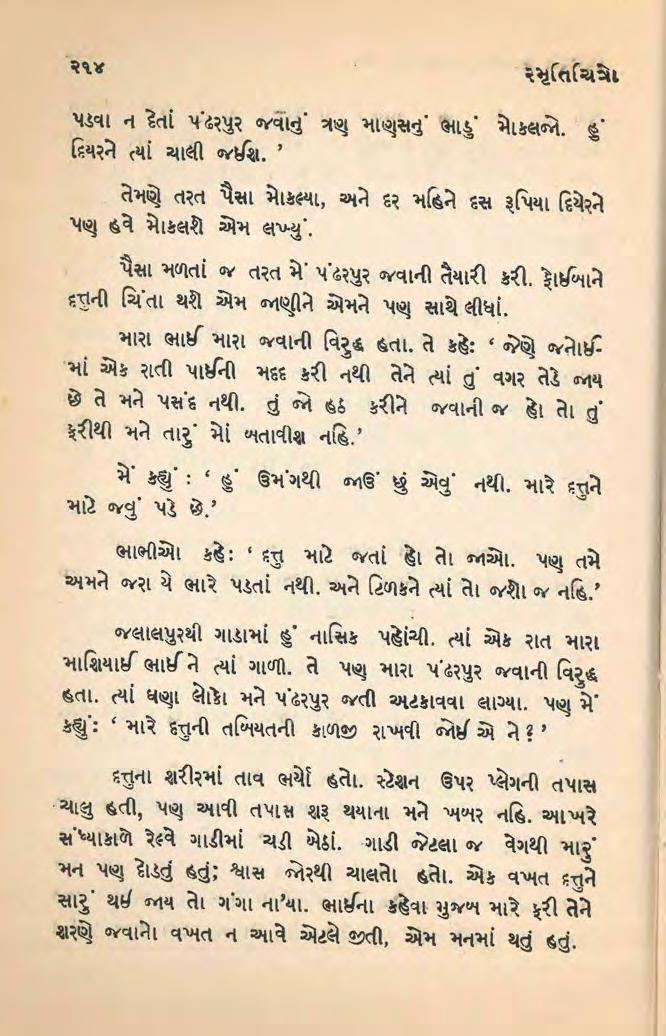 ૨૧૪
સ્મૃતિચિત્રો
પડવા ન દેતાં પંઢરપુર જવાનું ત્રણ માણસનું ભાડું મોકલજો. હું
દિયરને ત્યાં ચાલી જઈશ. ’
તેમણે તરત પૈસા મોકલ્યા, અને દર મહિને દસ રૂપિયા દિયેરને
પણ હવે મોકલશે એમ લખ્યું.
પૈસા મળતાં જ તરત મેં પંઢરપુર જવાની તૈયારી કરી. ફોઈબાને
દત્તુની ચિંતા થશે એમ જાણીને એમને પણ સાથે લીધાં.
મારા ભાઈ મારા જવાની વિરુદ્ધ હતા. તે કહે: ‘ જેણે જનોઈ-
માં એક રાતી પાઈની મદદ કરી નથી તેને ત્યાં તું વગર તેડે જાય
છે તે મને પસંદ નથી. તું જો હઠ કરીને જવાની જ હો તો તું
ફરીથી મને તારું મોં બતાવીશ નહિ.’
મેં કહ્યું : ‘ હું ઉમંગથી જાઉં છું એવું નથી. મારે દત્તુને
માટે જવું પડે છે.’
ભાભીઓ કહે: ‘ દત્તુ માટે જતાં હો તો જાઓ. પણ તમે
અમને જરા યે ભારે પડતાં નથી. અને ટિળકને ત્યાં તો જશો જ નહિ.’
જલાલપુરથી ગાડામાં હું નાસિક પહોંચી. ત્યાં એક રાત મારા
માશિયાઈ ભાઈ ને ત્યાં ગાળી. તે પણ મારા પંઢરપુર જવાની વિરુદ્ધ
હતા. ત્યાં ઘણા લોકો મને પંઢરપુર જતી અટકાવવા લાગ્યા. પણ મેં
કહ્યું: ‘ મારે દત્તુની તબિયતની કાળજી રાખવી જોઈ એ ને ? ’
દત્તુના શરીરમાં તાવ ભર્યો હતો. સ્ટેશન ઉપર પ્લેગની તપાસ
ચાલુ હતી, પણ આવી તપાસ શરૂ થયાના મને ખબર નહિ. આખરે
સંધ્યાકાળે રેલ્વે ગાડીમાં ચડી બેઠાં. ગાડી જેટલા જ વેગથી મારું
મન પણ દોડતું હતું; શ્વાસ જોરથી ચાલતો હતો. એક વખત દત્તુને
સારું થઈ જાય તો ગંગા ના’યા. ભાઈના કહેવા મુજબ મારે ફરી તેને
શરણે જવાનો વખત ન આવે એટલે જીતી, એમ મનમાં થતું હતું.